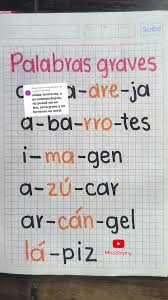 Scribe
Palabras graves
are-ja
a-ba-rro-tes
i-ma-gen
a-zú-car
ar-cán-gel
lá-piz
MissStephy